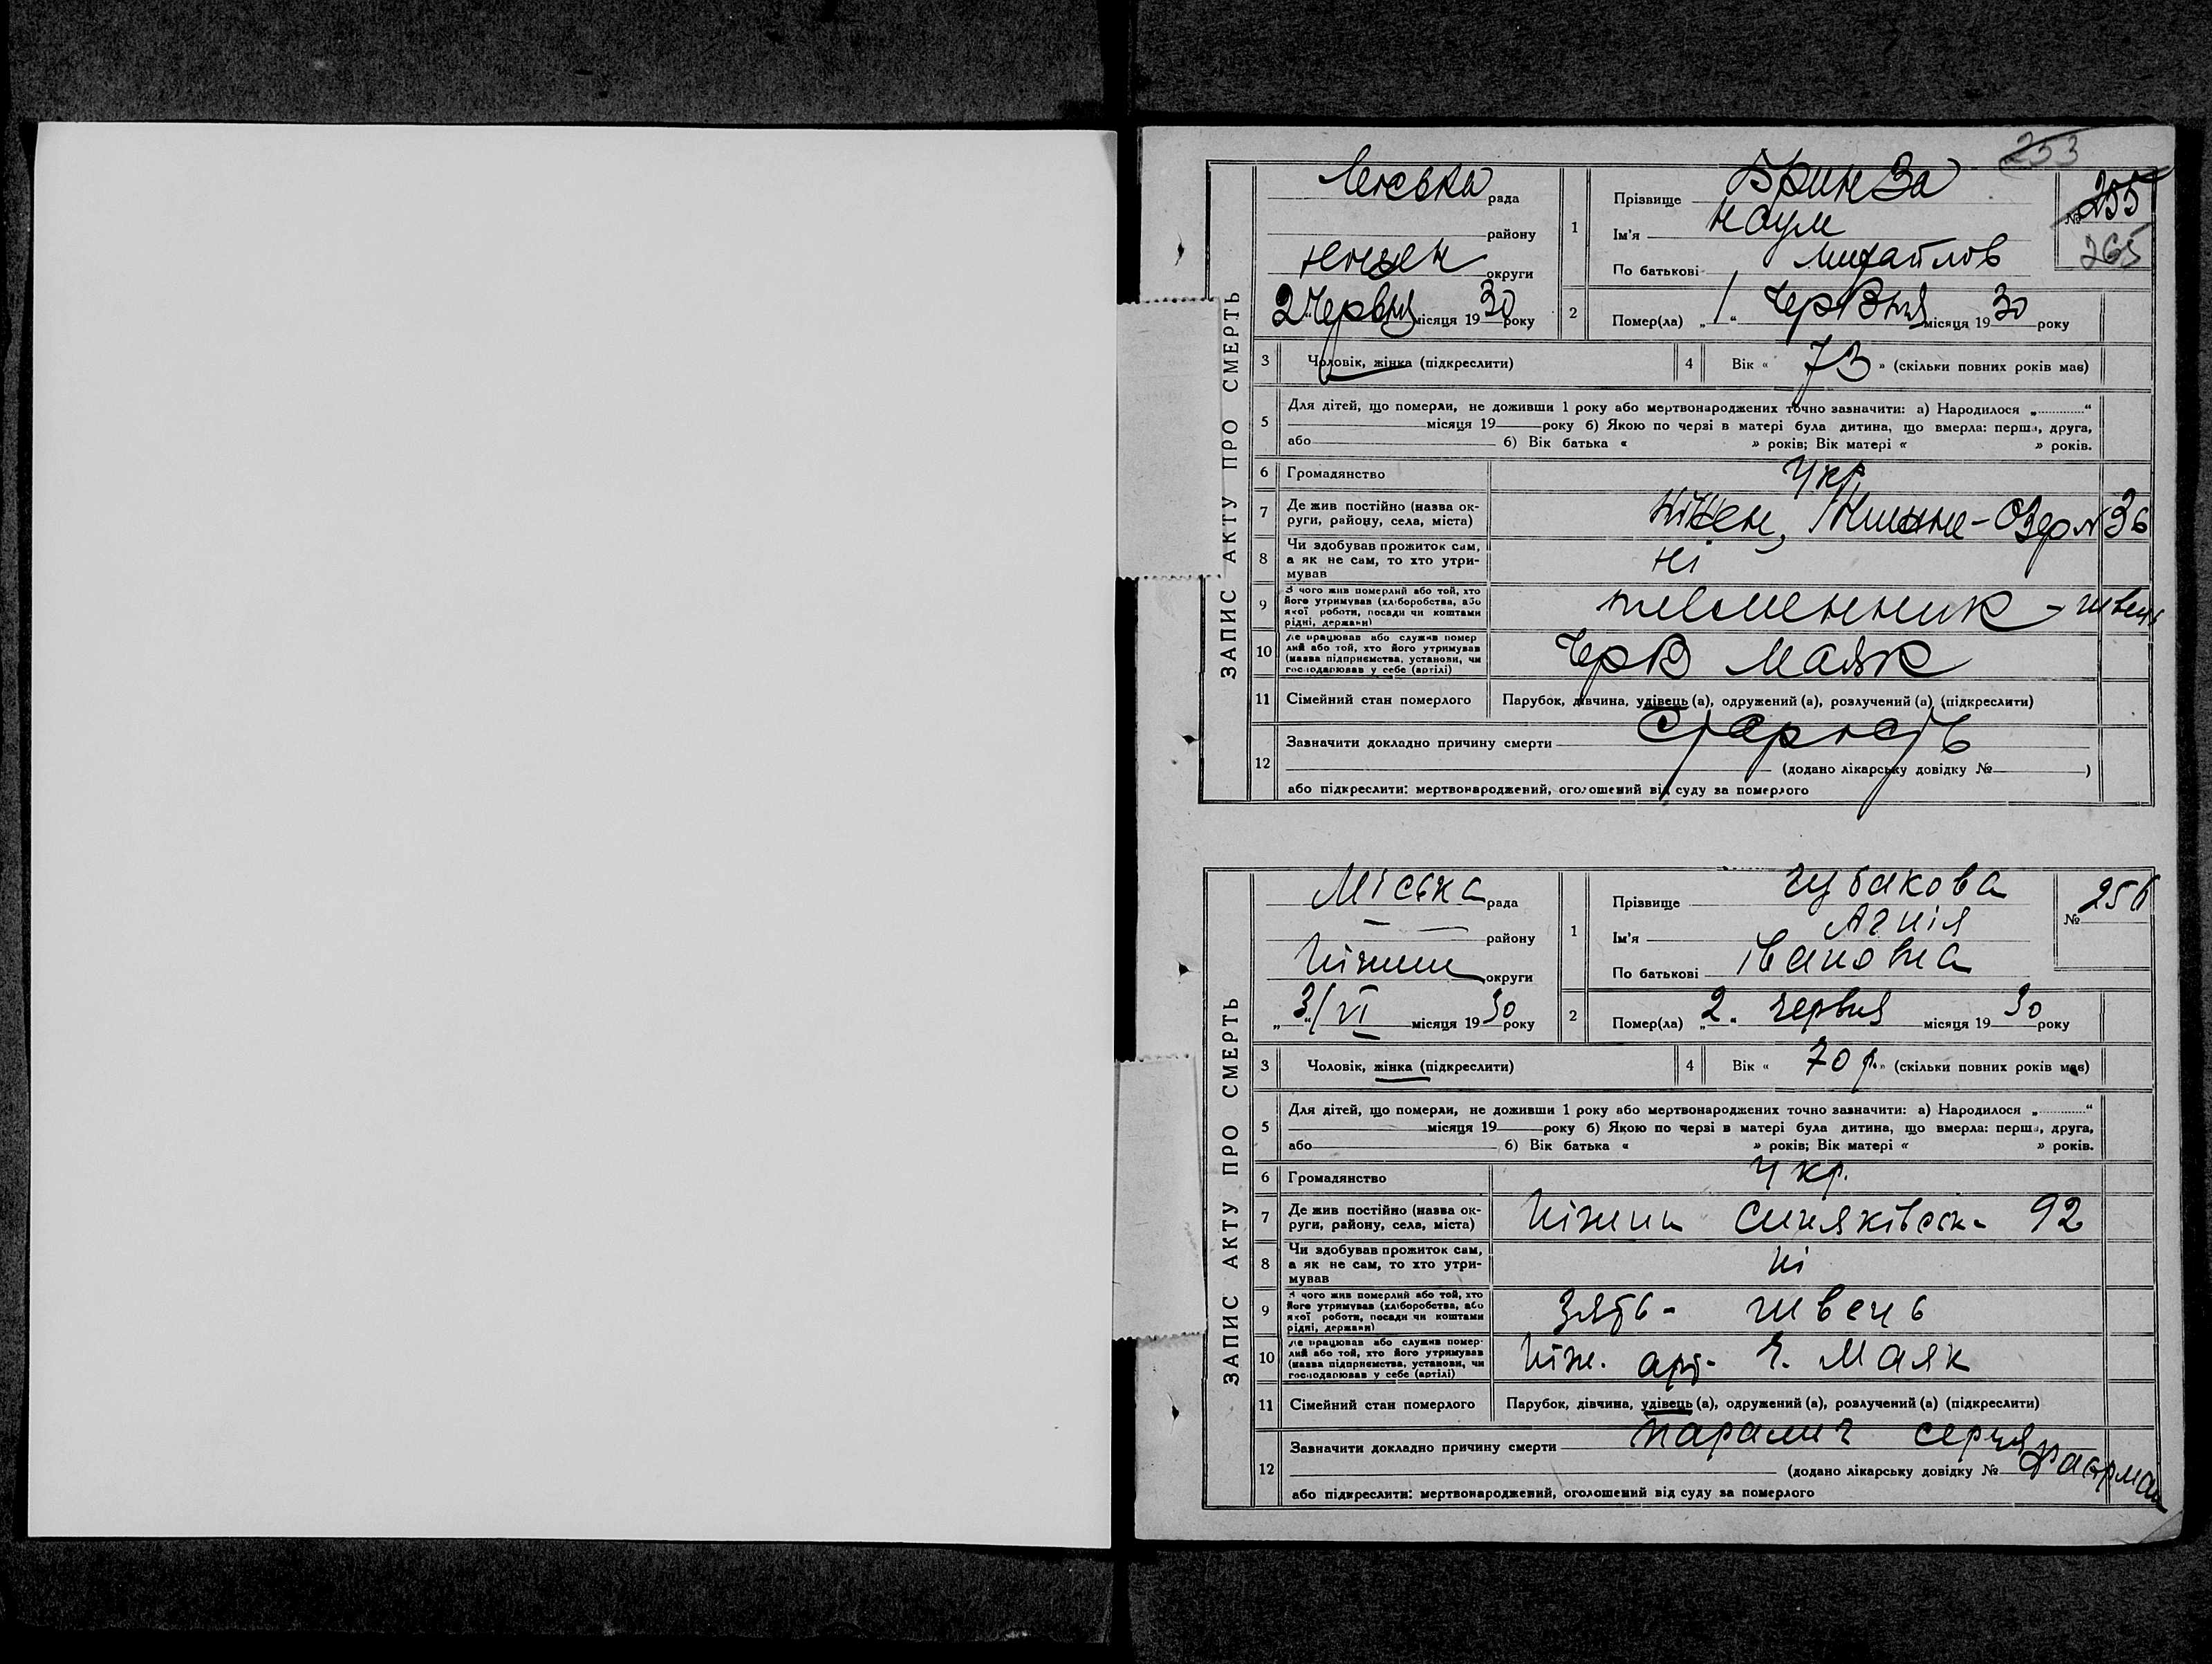 253
ЗАПИС АКТУ ПРО СМЕРТЬ
Міська рада
району
округи
2 Червня місяця 1930 року
1
Прізвище Бринза
Ім'я Наум
По батькові Михайлов
№ 255
265
2
Помер(ла) „1“ Червня місяця 1930 року
3 Чоловік, жінка (підкреслити)
4 Вік « 73 » (скільки повних років має)
5
Для дітей, що померли, не доживши 1 року або мертвонароджених точно зазначити: а) Народилося „ “
місяця 19 року б) Якою по черзі в матері була дитина, що вмерла: перша, друга,
або б) Вік батька « » років; Вік матері « » років.
6 Громадянство Укр.
7 Де жив постійно (назва ок-
руги, району, села, міста)
Ніжен, - Озер № 36
8 Чи здобував прожиток сам,
а як не сам, то хто утри-
мував
ні
9 З чого жив померлий або той, хто
його утримував (хліборобства, або
якої роботи, посади чи коштами
рідні, держави)
племенник - швець
10 Де працював або служив помер
лий або той, хто його утримував
(назва підприємства, установи, чи
господарював у себе (артілі)
Черв Маяк
11 Сімейний стан померлого Парубок, дівчина, удівець (а), одружений (а), розлучений (а) (підкреслити)
12
Зазначити докладно причину смерти старість
(додано лікарську довідку № )
або підкреслити: мертвонароджений, оголошений від суду за померлого
ЗАПИС АКТУ ПРО СМЕРТЬ
Міська рада
— району
Ніжин округи
„3“/VI місяця 1930 року
1
Прізвище Чубакова
Ім'я Агнія
По батькові Івановна
№ 256
2
Помер(ла) „2“ червня місяця 1930 року
3 Чоловік, жінка (підкреслити)
4 Вік « 70 р. » (скільки повних років має)
5
Для дітей, що померли, не доживши 1 року або мертвонароджених точно зазначити: а) Народилося „ “
місяця 19 року б) Якою по черзі в матері була дитина, що вмерла: перша, друга,
або б) Вік батька « » років; Вік матері « » років.
6 Громадянство Укр.
7 Де жив постійно (назва ок-
руги, району, села, міста)
Ніжин Синяківськ- 92
8 Чи здобував прожиток сам,
а як не сам, то хто утри-
мував
ні
9 З чого жив померлий або той, хто
його утримував (хліборобства, або
якої роботи, посади чи коштами
рідні, держави)
Зять- швець
10 Де працював або служив помер-
лий або той, хто його утримував
(назва підприємства, установи, чи
господарював у себе (артілі)
Ніж. арт- Ч. Маяк
11 Сімейний стан померлого Парубок, дівчина, удівець (а), одружений (а), розлучений (а) (підкреслити)
12
Зазначити докладно причину смерти параліч серця
(додано лікарську довідку № )
або підкреслити: мертвонароджений, оголошений від суду за померлого